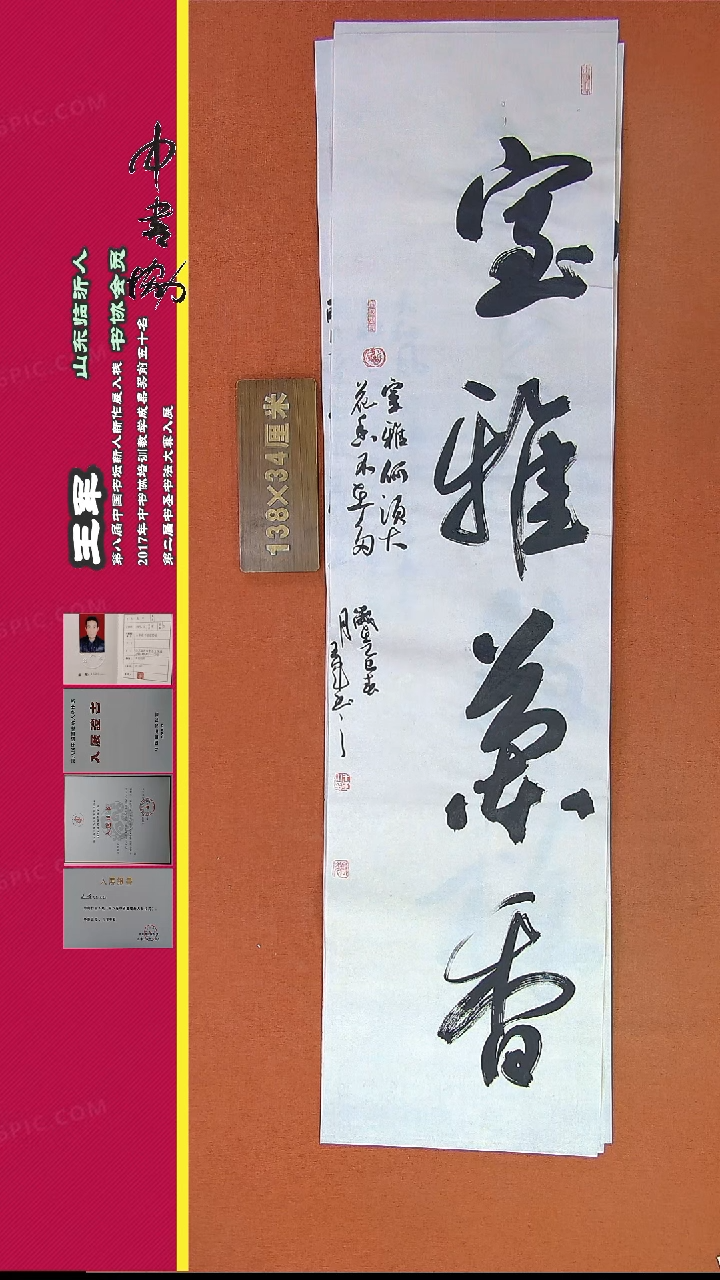 室雅蘭香
室雅何須大
花香不在多
乙巳春
月王军书
138×34厘米
中书协
山东临沂人
书协会员
王军
第八届中国书坛新人新作展入展
2017年中书协培训教学成果奖前五十名
第二届书圣书法大赛入展
入展證书